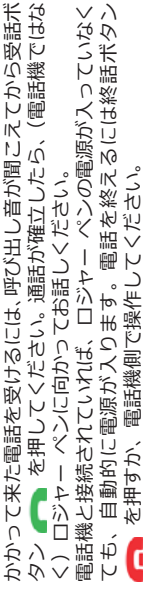 かかって来た電話を受けるには、呼び出し音が聞こえてから受話ボ
タン を押してください。通話が確立したら、（電話機ではな
く）ロジャー ペンに向かってお話しください。
電話機と接続されていれば、ロジャー ペンの電源が入っていなく
ても、自動的に電源が入ります。電話を終えるには終話ボタン
を押すか、電話機側で操作してください。